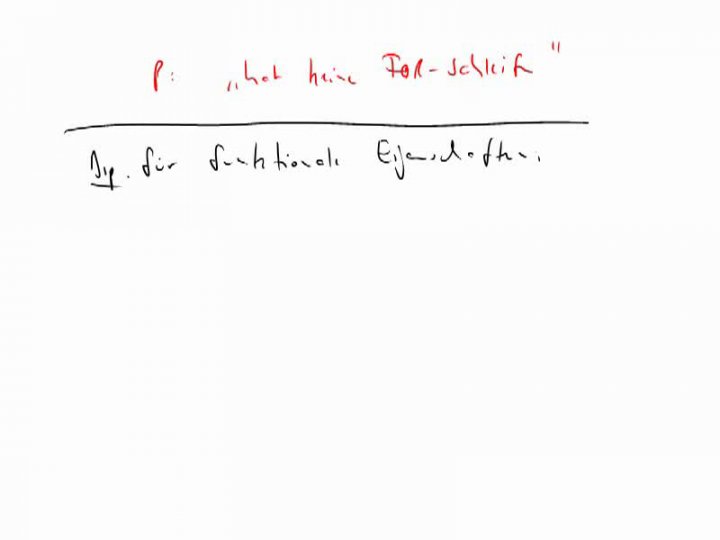 P: „hat keine FOR-Schleife"
Bsp. für funktionale Eigenschaften: